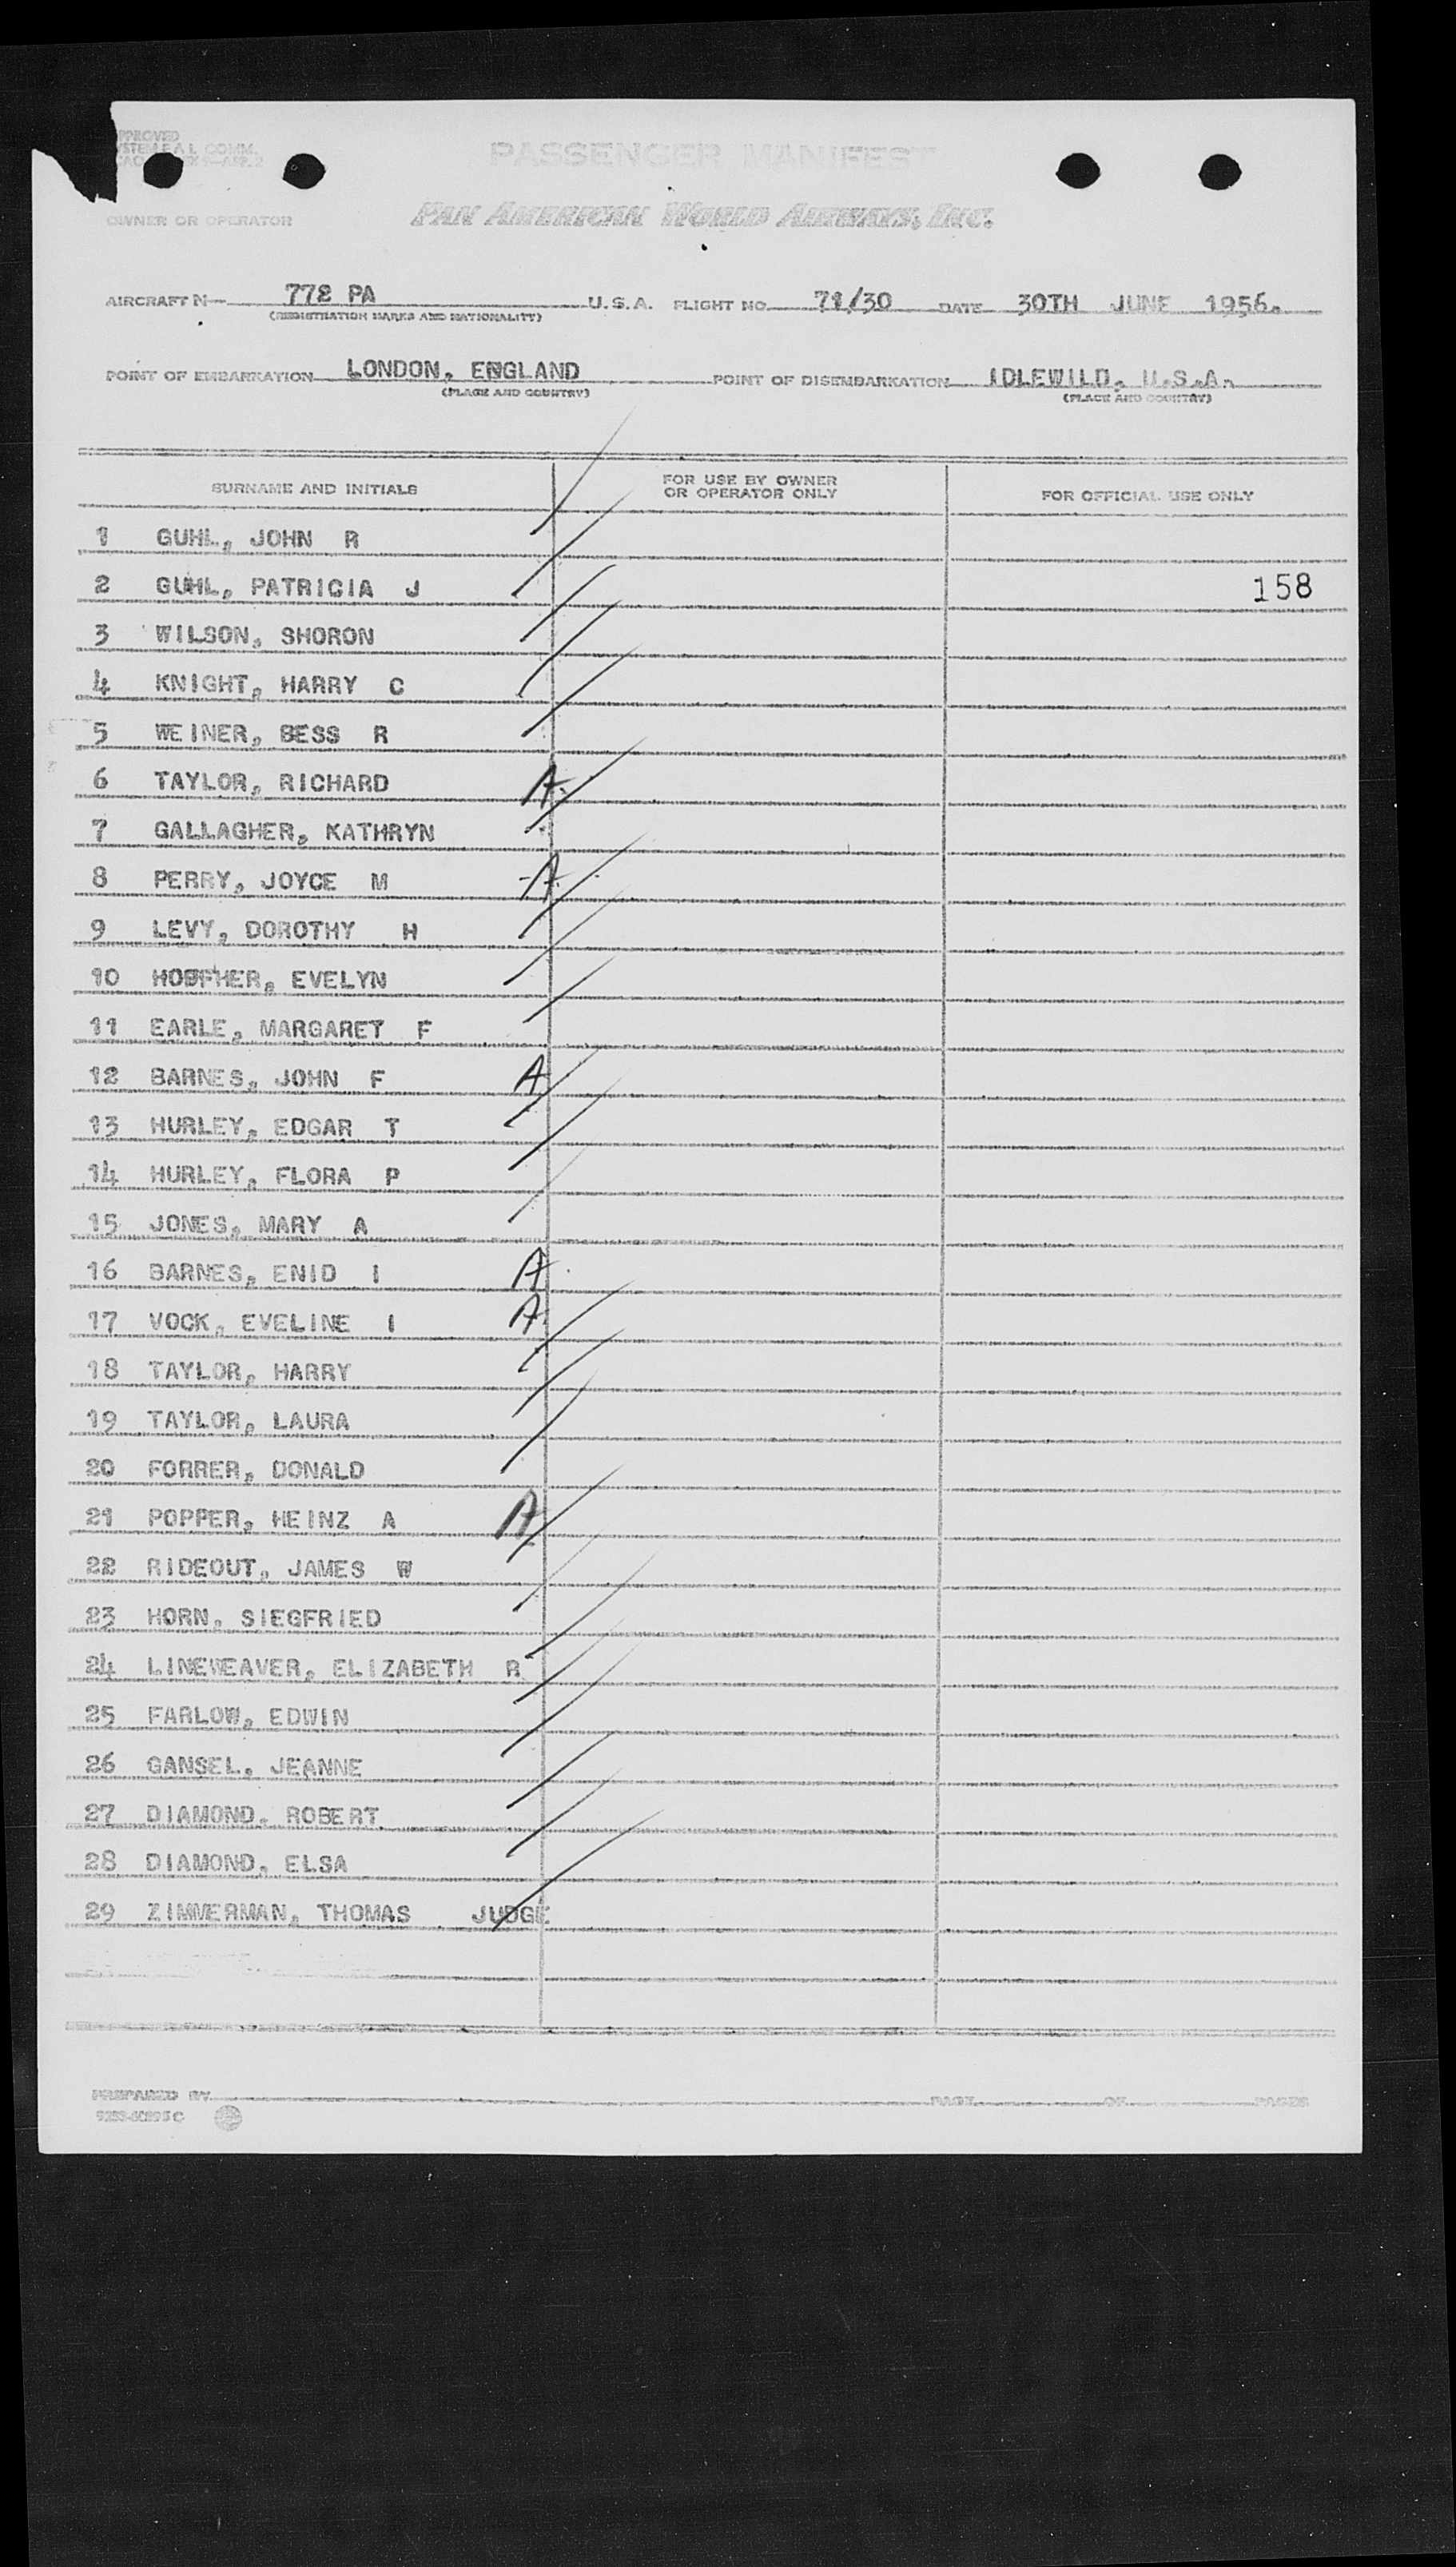 PPROVED
PASSENGER MANIFEST
OWNER OR OPERATOR PAN AMERICAN WORLD AIRWAYS, INC.
AIRCRAFT N 772 PA U.S.A. FLIGHT NO. 71/30 DATE 30TH JUNE 1956.
(REGISTRATION MARKS AND NATIONALITY)
POINT OF EMBARKATION LONDON, ENGLAND POINT OF DISEMBARKATION IDLEWILD, U.S.A.
(PLACE AND COUNTRY) (PLACE AND COUNTRY)
SURNAME AND INITIALS FOR USE BY OWNER OR OPERATOR ONLY FOR OFFICIAL USE ONLY
1 GUHL, JOHN R
2 GUHL, PATRICIA J 158
3 WILSON, SHORON
4 KNIGHT, HARRY C
5 WEINER, BESS R
6 TAYLOR, RICHARD A
7 GALLAGHER, KATHRYN
8 PERRY, JOYCE M A
9 LEVY, DOROTHY H
10 EVELYN
11 EARLE, MARGARET F
12 BARNES, JOHN F A
13 HURLEY, EDGAR T
14 HURLEY, FLORA P
15 JONES, MARY A
16 BARNES, ENID I A
17 VOCK, EVELINE I A
18 TAYLOR, HARRY
19 TAYLOR, LAURA
20 FORRER, DONALD
21 POPPER, HEINZ A A
22 RIDEOUT, JAMES W
23 HORN, SIEGFRIED
24 LINEWEAVER, ELIZABETH R
25 FARLOW, EDWIN
26 GANSEL, JEANNE
27 DIAMOND, ROBERT
28 DIAMOND, ELSA
29 ZIMMERMAN, THOMAS JUDGE
PREPARED BY PAGE OF PAGES